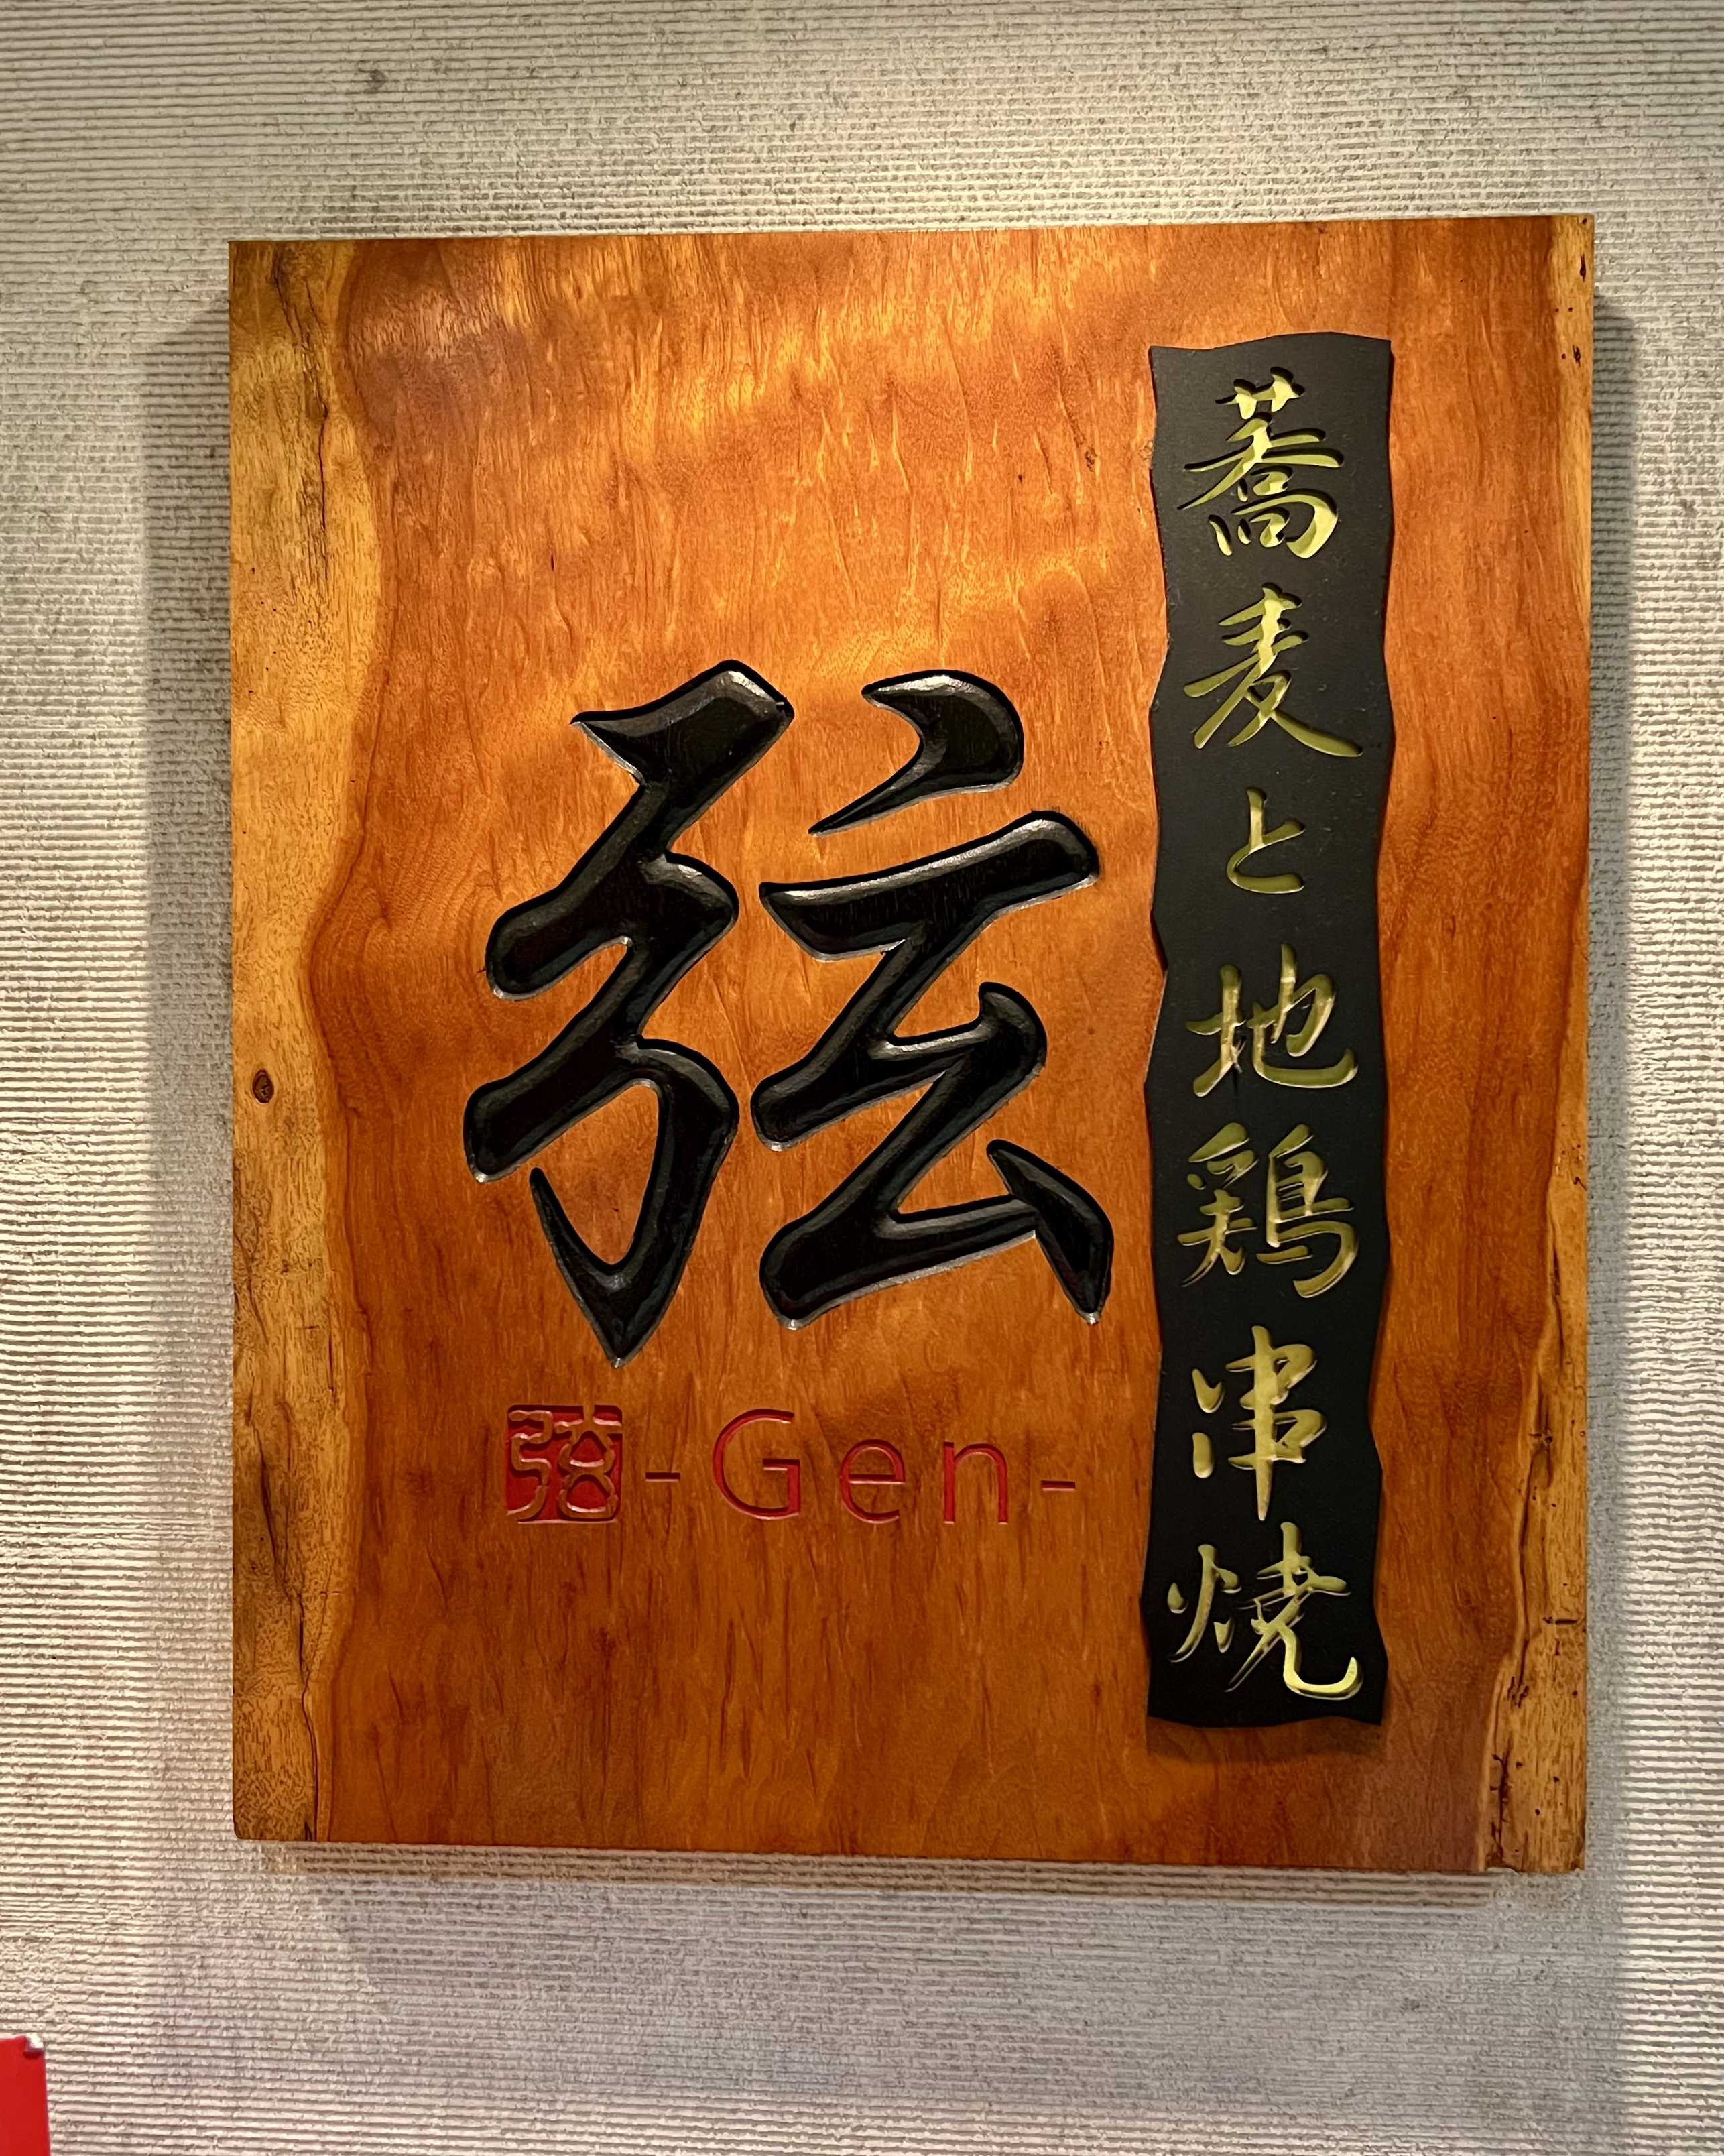 蕎麦と地鶏串焼
弦
弦 -Gen-